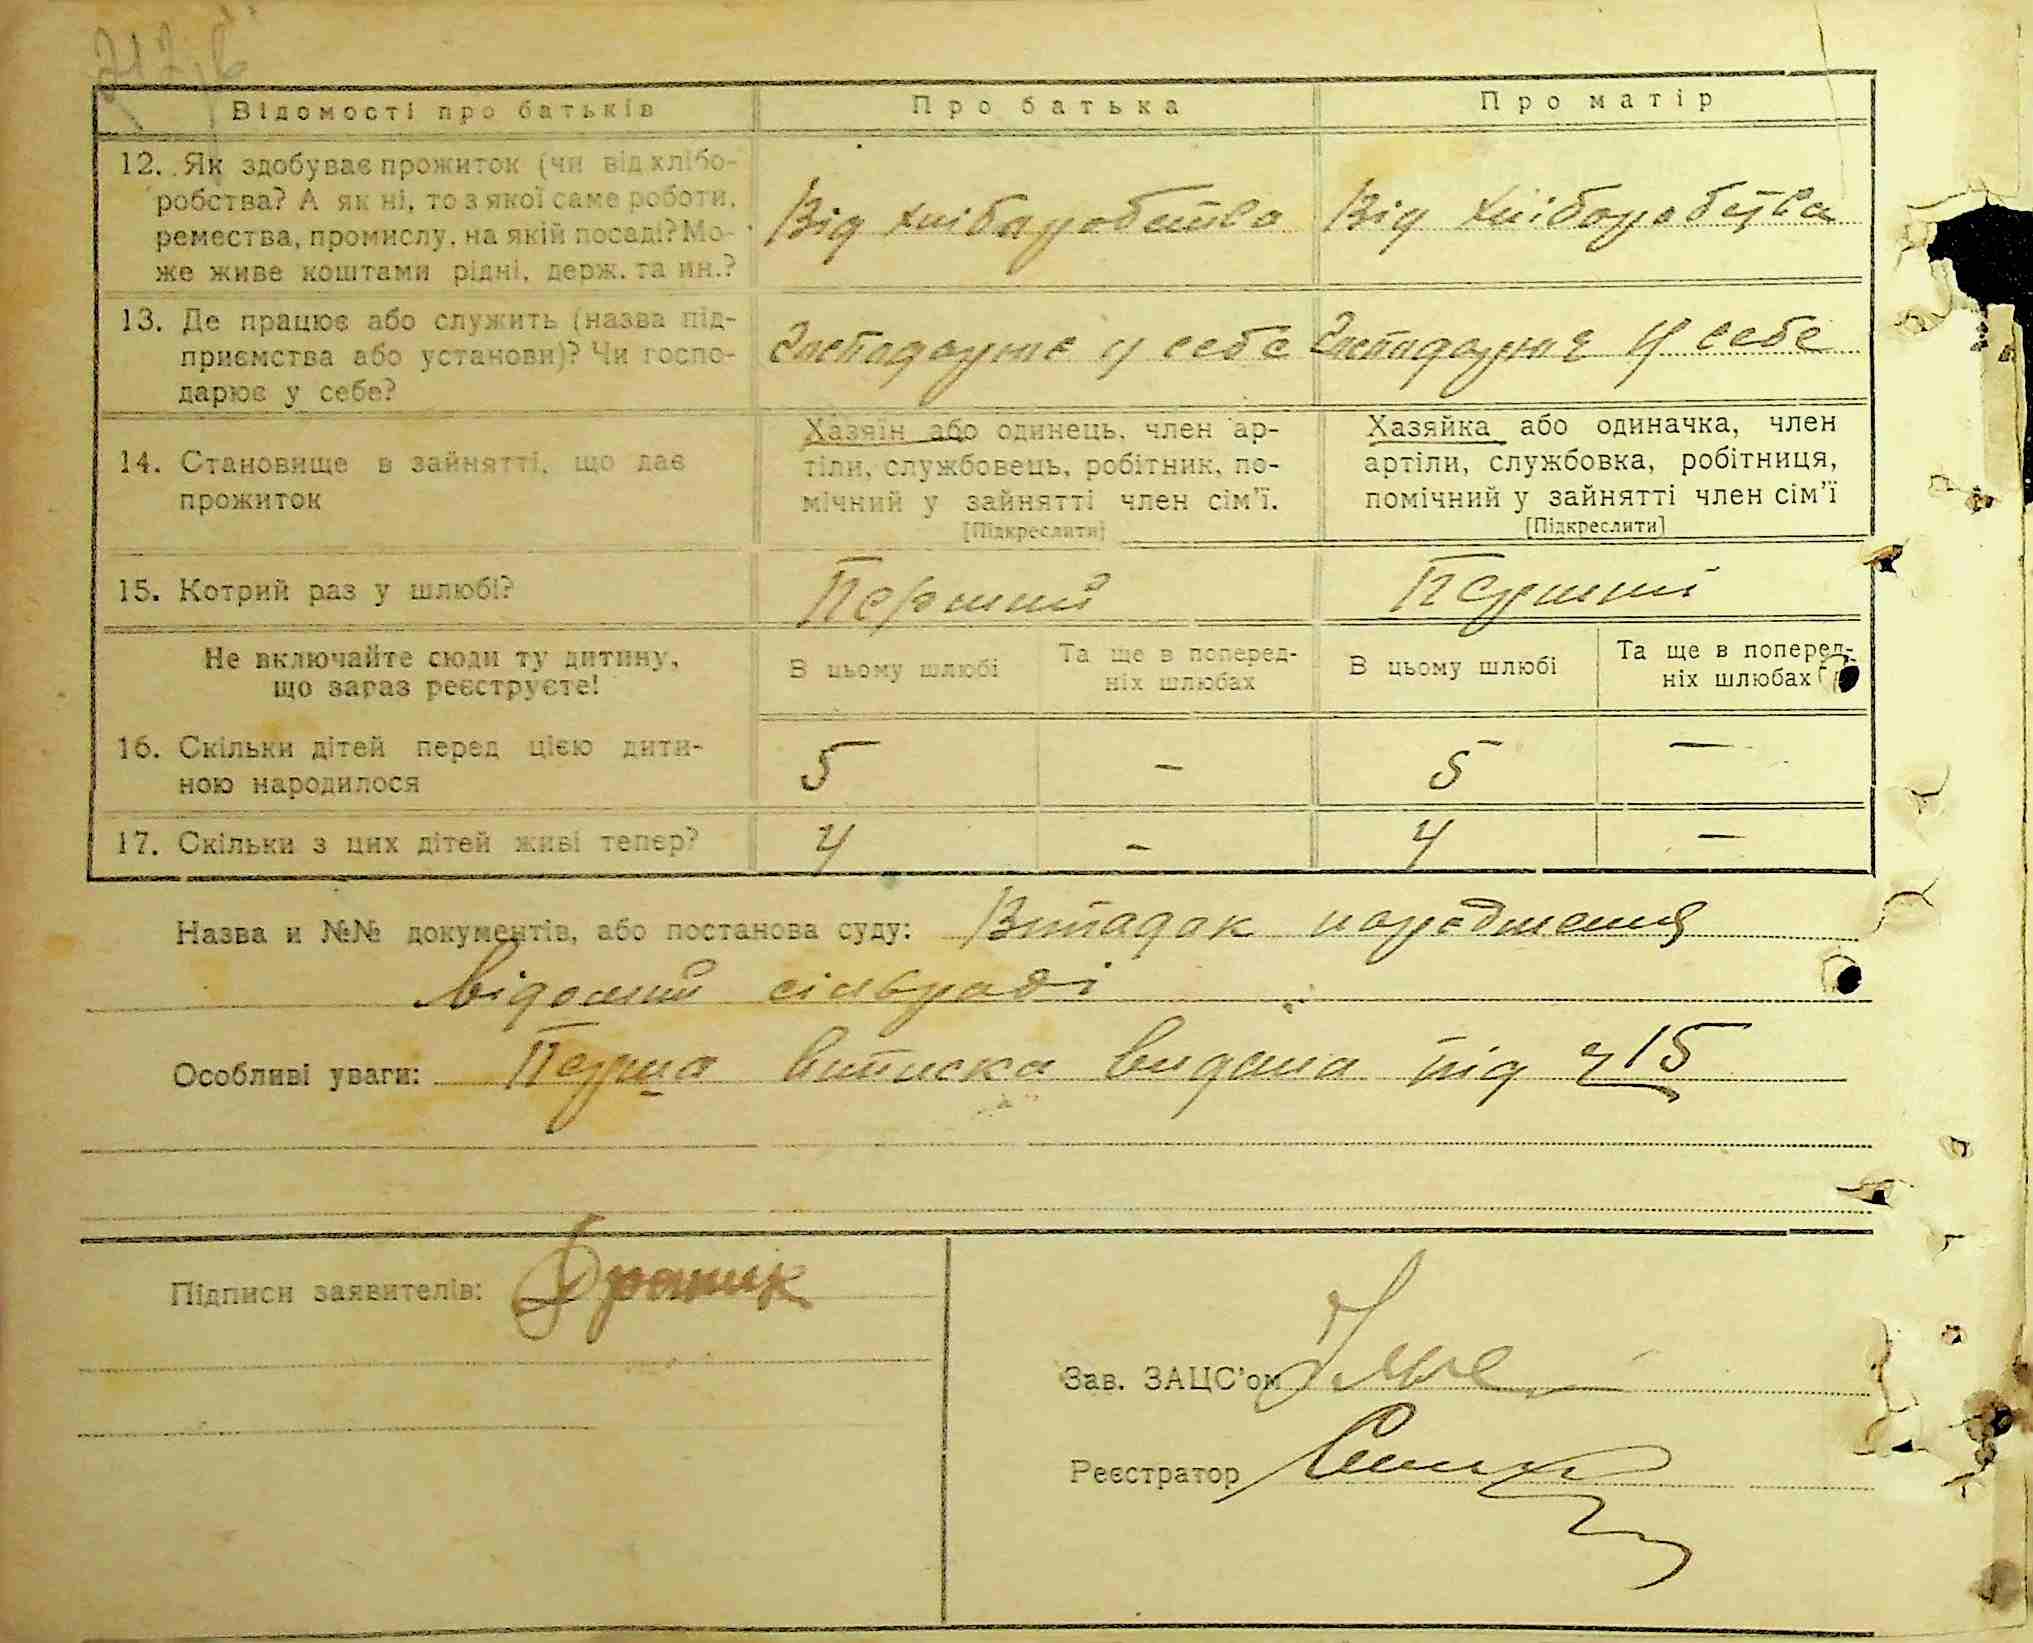 Відомості про батьків Про батька Про матір
12. Як здобуває прожиток (чи від хлібо-
робства? А як ні, то з якої саме роботи,
ремества, промислу, на якій посаді? Мо-
же живе коштами рідні, держ. та ин.?
Від хліборобства Від хліборобства
13. Де працює або служить (назва під-
приємства або установи)? Чи госпо-
дарює у себе?
Господарює у себе Господарює у себе
14. Становище в зайнятті, що дає
прожиток
Хазяїн або одинець, член ар-
тіли, службовець, робітник, по-
мічний у зайнятті член сім'ї.
[Підкреслити]
Хазяйка або одиначка, член
артіли, службовка, робітниця,
помічний у зайнятті член сім'ї
[Підкреслити]
15. Котрий раз у шлюбі? Перший Перший
Не включайте сюди ту дитину,
що зараз реєструєте!
В цьому шлюбі
Та ще в поперед-
ніх шлюбах
В цьому шлюбі
Та ще в поперед-
ніх шлюбах
16. Скільки дітей перед цією дити-
ною народилося
5 – 5 –
17. Скільки з цих дітей живі тепер? 4 – 4 –
Назва и №№ документів, або постанова суду: Випадок народження
відомий сільраді
Особливі уваги: Перша виписка видана під ч 15
Підписи заявителів:
Зав. ЗАЦС'ом
Реєстратор